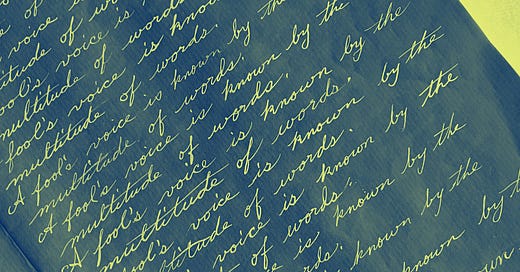 voice is
titude of words
fool's voice is known by the
multitude of words.
fool's voice is known by the
multitude of words.
A fool's voice is known by the
multitude of words.
A fool's voice is known by the
multitude of words.
A fool's voice is known by the
multitude of words.
fool's voice is known by the
titude of words.
voice is known by the
of words.
is known by the
known by